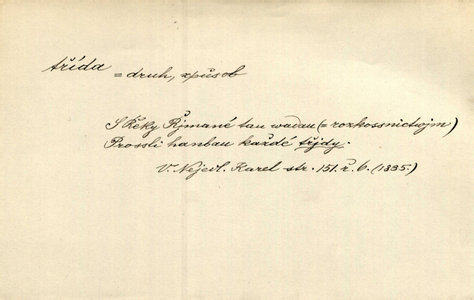 třída
= druh, způsob
S Řeky Řjmané tau wadau (= rozkossnictwjm)
Prossli hanbau každé třjdy.
V. Nejedl. Karel str. 151. ř. 6. (1835.)